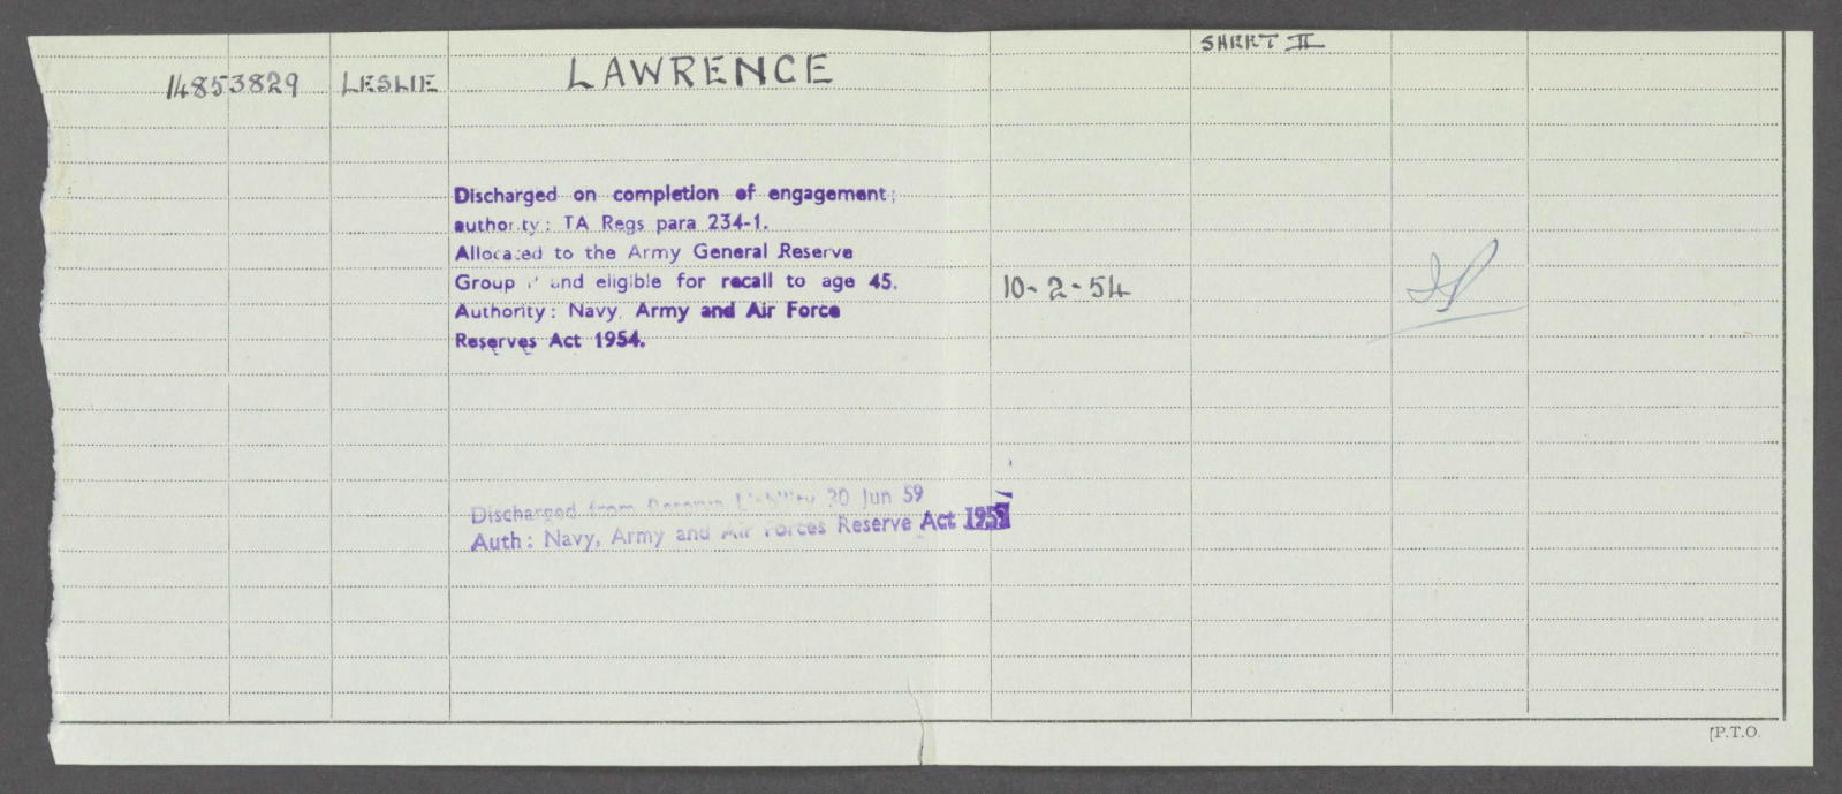 SHEET II
14853829 LESLIE LAWRENCE
Discharged on completion of engagement;
authority: TA Regs para 234-1.
Allocated to the Army General Reserve
Group and eligible for recall to age 45.
10-2-54
Authority: Navy, Army and Air Force
Reserves Act 1954.
Discharged from Reserve Liability 30 Jun 59
Auth: Navy, Army and Air Forces Reserve Act 1959
[P.T.O.